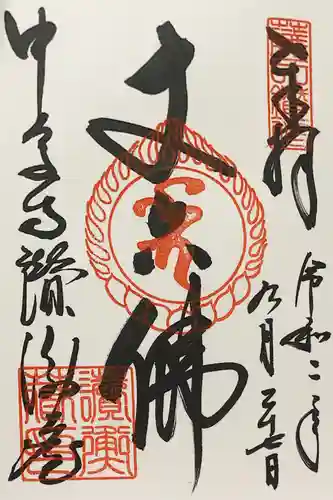 奉拝
令和二年
九月二十七日
丈六佛
中尊寺讃衡蔵
讃衡蔵印